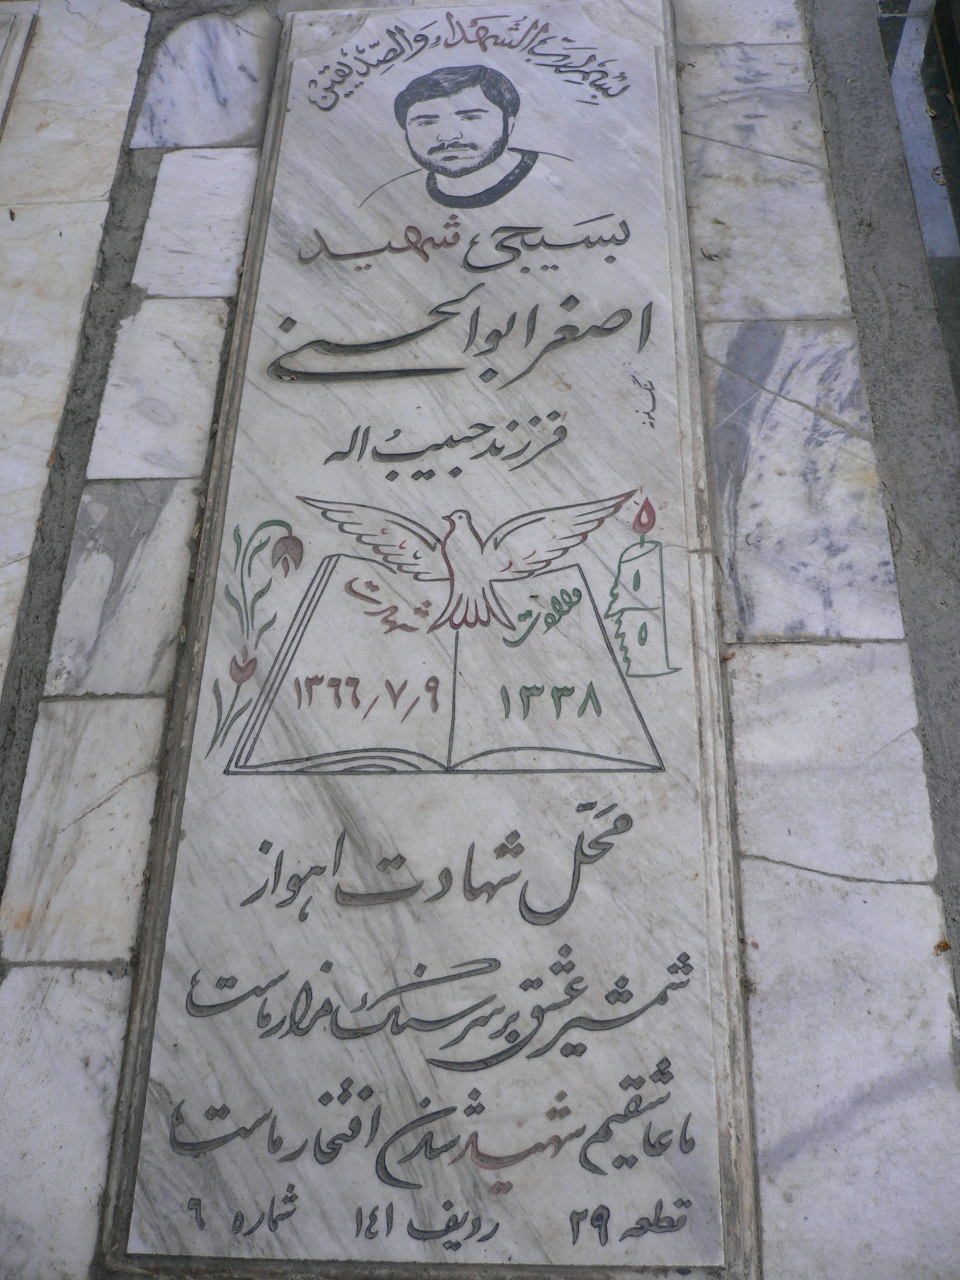 بسم رب الشهداء والصدیقین
بسیجی شهید
اصغر ابوالحسنی
فرزند حبیب اله
شهادت
متولد
۱۳۶۶/۷/۹
۱۳۳۸
محل شهادت اهواز
شمشیر عشق بر سر سنگ مزار ماست
ما عاشقیم شهید شدن افتخار ماست
قطعه ۲۹ ردیف ۱۴۱ شماره ۹